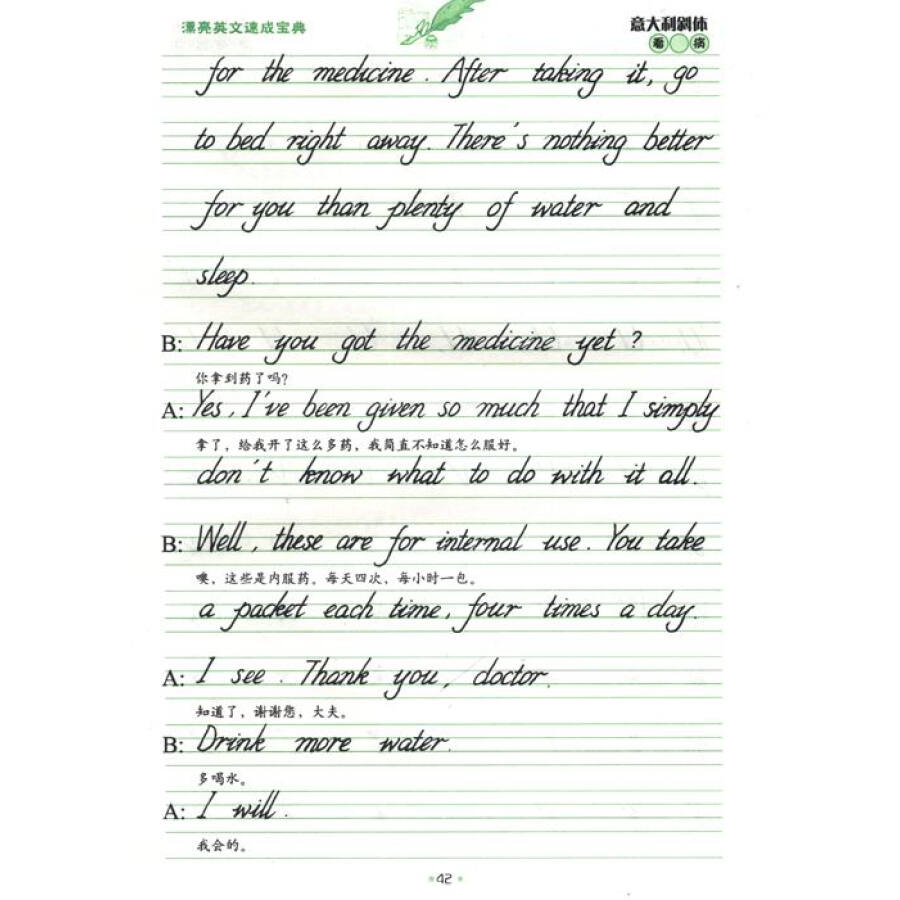 漂亮英文速成宝典
意大利斜体
看 病
for the medicine. After taking it, go
to bed right away. There's nothing better
for you than plenty of water and
sleep.
B: Have you got the medicine yet?
你拿到药了吗?
A: Yes, I've been given so much that I simply
拿了，给我开了这么多药，我简直不知道怎么服好。
don't know what to do with it all.
B: Well, these are for internal use. You take
噢，这些是内服药。每天四次，每小时一包。
a packet each time, four times a day.
A: I see. Thank you, doctor.
知道了，谢谢您，大夫。
B: Drink more water.
多喝水。
A: I will.
我会的。
42